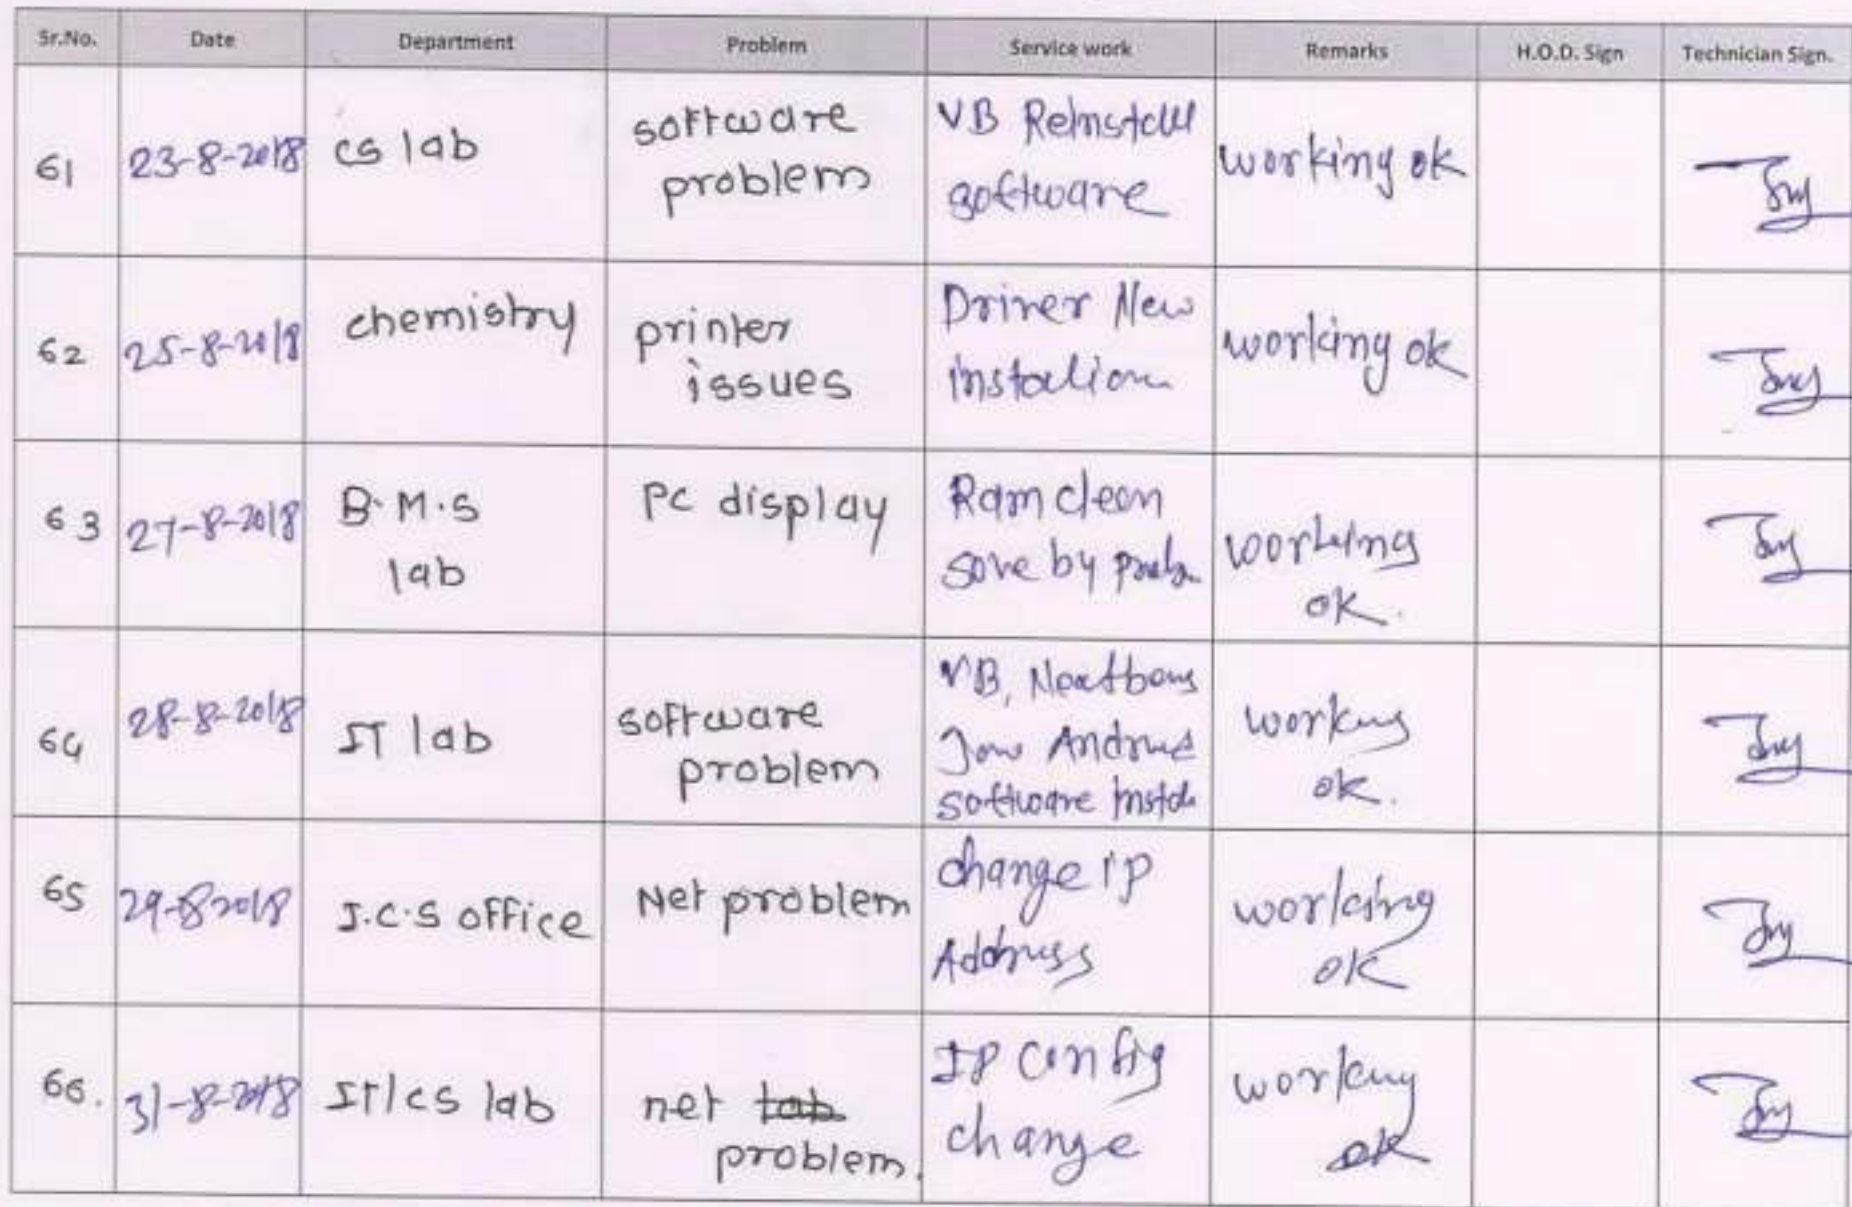 Sr.No. Date Department Problem Service work Remarks H.O.D. Sign Technician Sign.
61 23-8-2018 cs lab software problem VB Reinstall software working ok
62 25-8-2018 chemistry printer issues Driver New instalion working ok
63 27-8-2018 B.M.S lab PC display Ram clean sove by working ok.
64 28-8-2018 IT lab software problem VB, software working ok.
65 29-8-2018 I.C.S office Net problem change ip Address working ok
66. 31-8-2018 IT/cs lab net problem. IP Config change working ok